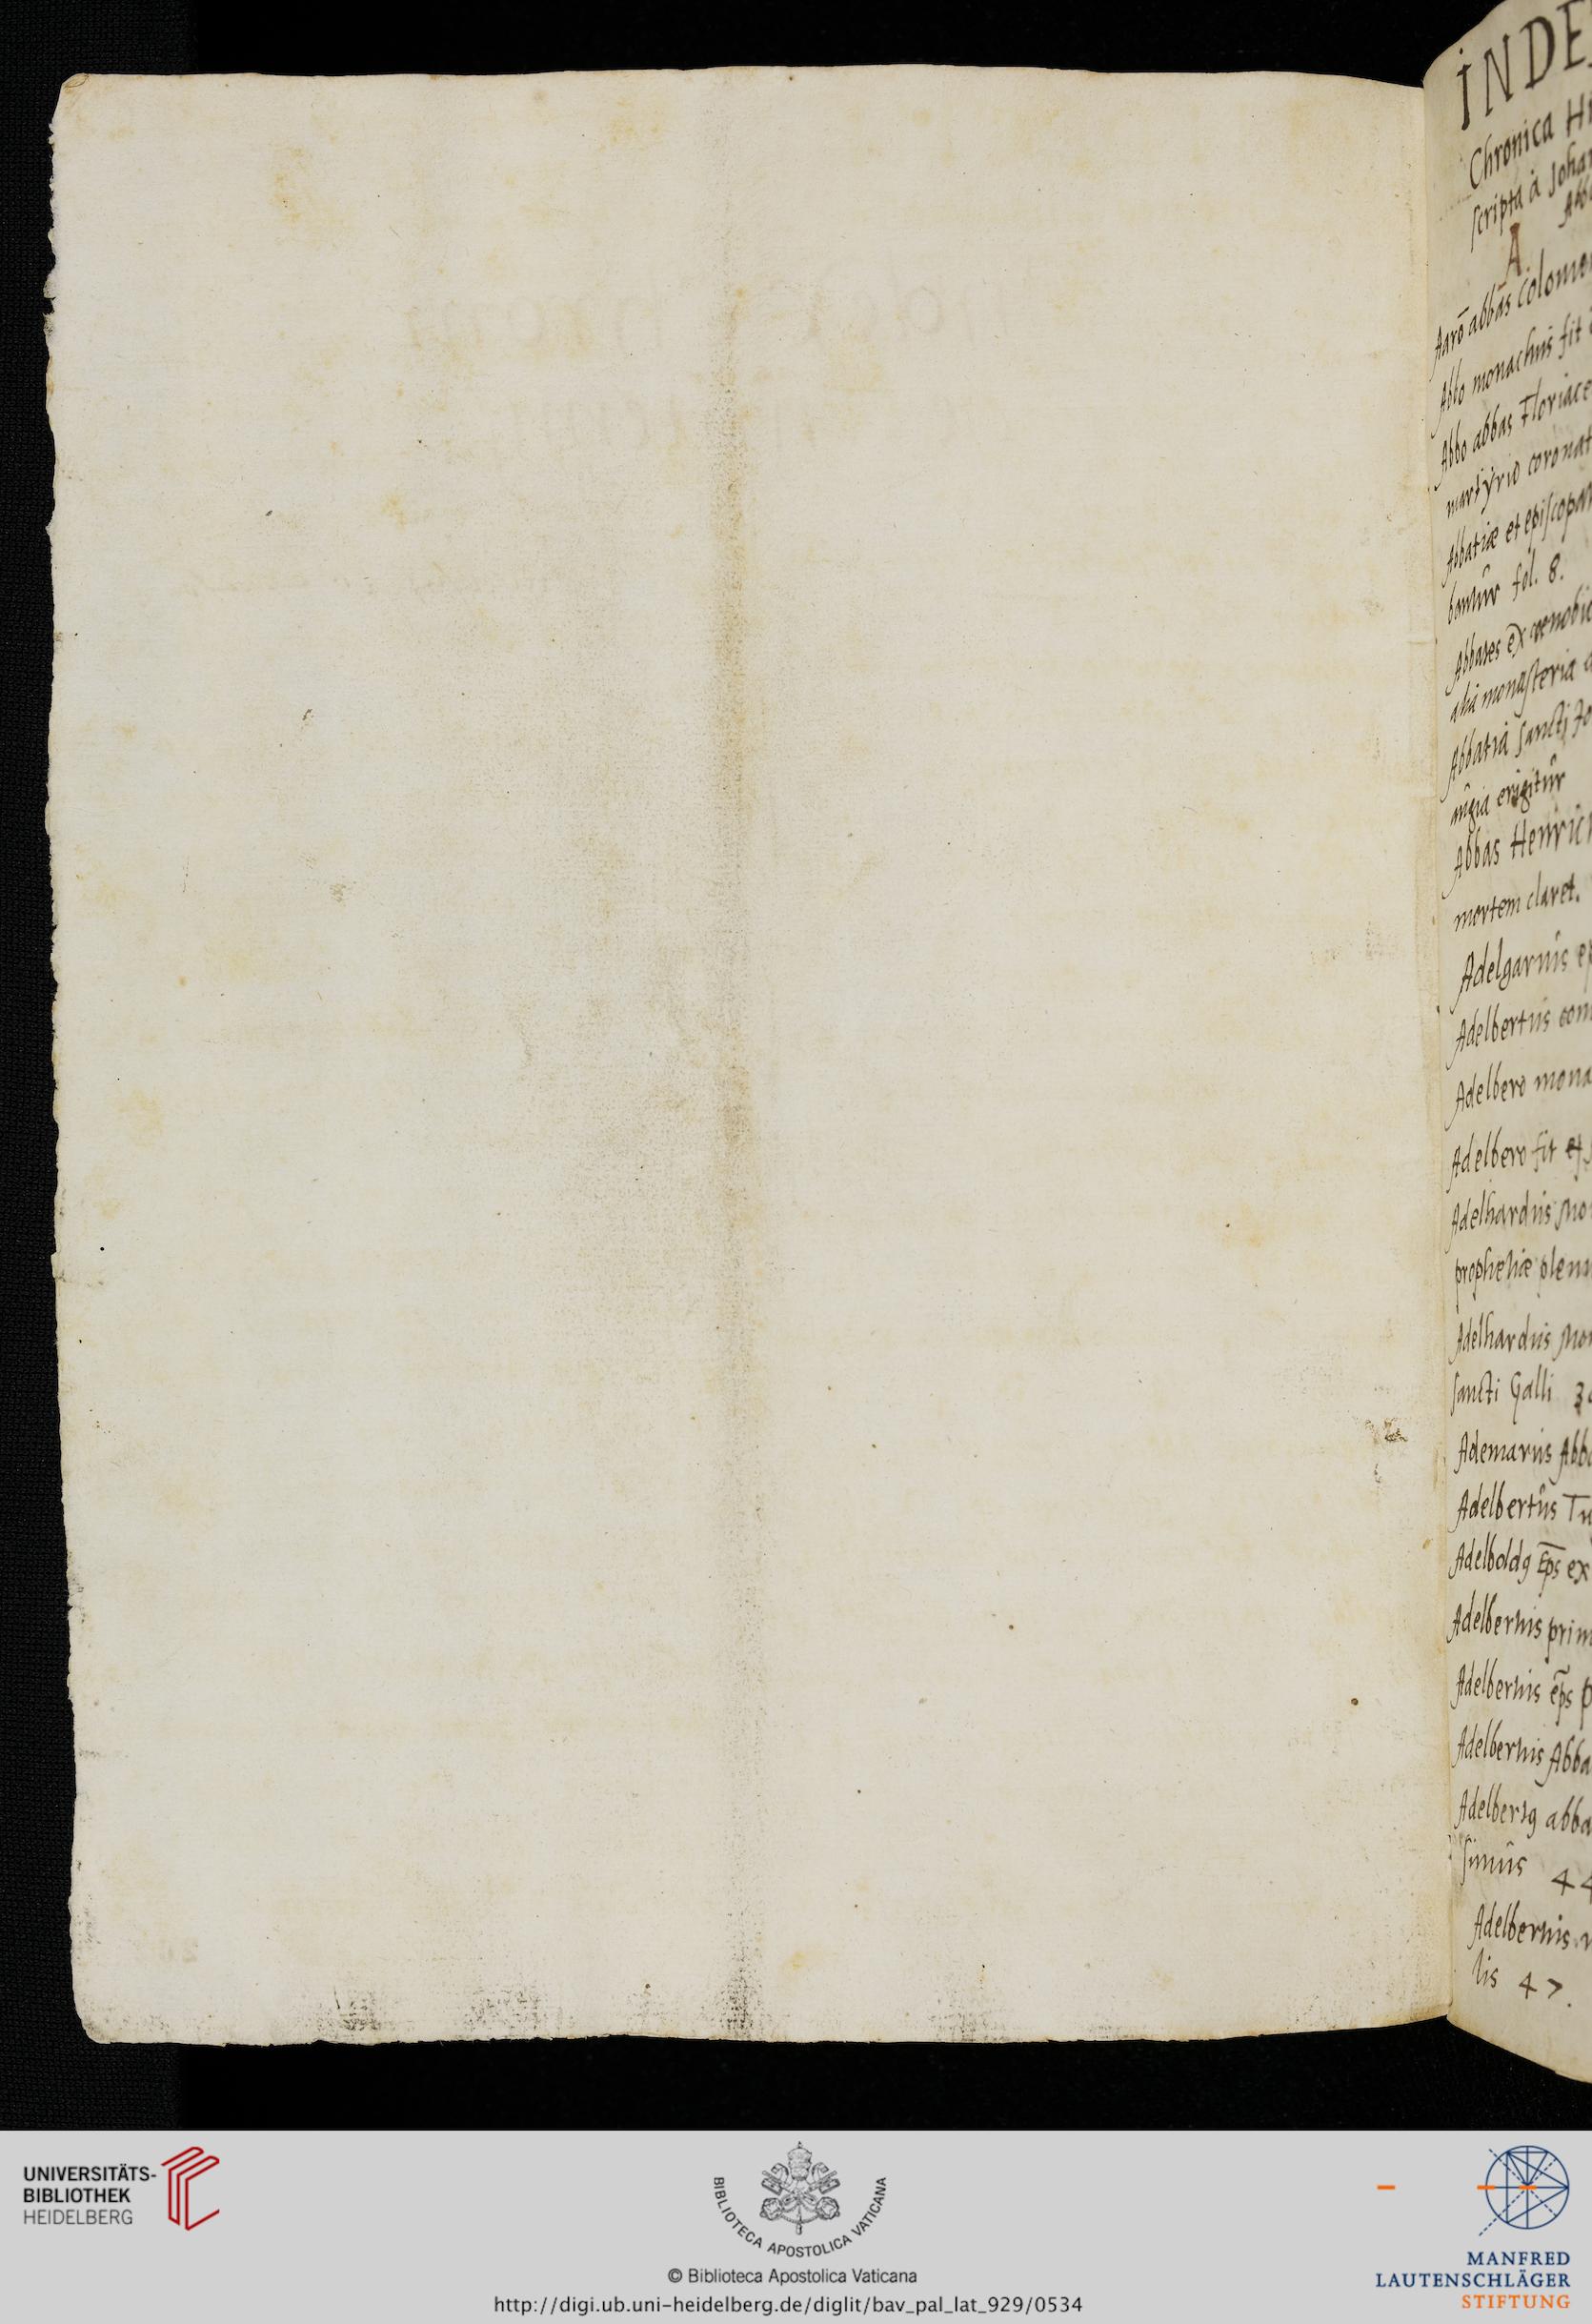 INDE
Chronica Hi
scripta à Johan
Abb
A
Aarō abbas Colonie
Abbo monachus fit
Abbo abbas Floriace
martyrio coronat
Abbatiæ et episcopat
bantur fol. 8.
Abbates ex cœnobio
alia monasteria
Abbatia Sancti Jo
augia erigitur
Abbas Henric
mortem claret.
Adelgarius ep
Adelbertus com
Adelbero mona
Adelbero fit
Adelhardus Mo
prophetiæ plenu
Adelhardus Mon
sancti Galli
Ademarus Abb
Adelbertus
Adelboldꝯ Ep̄s ex
Adelbertus prim
Adelbertus ep̄s p
Adelbertus Abba
Adelbertꝯ abba
simus 44
Adelbertus
lis 47.
UNIVERSITÄTS-
BIBLIOTHEK
HEIDELBERG
BIBLIOTECA APOSTOLICA VATICANA
© Biblioteca Apostolica Vaticana
http://digi.ub.uni-heidelberg.de/diglit/bav_pal_lat_929/0534
MANFRED
LAUTENSCHLÄGER
STIFTUNG